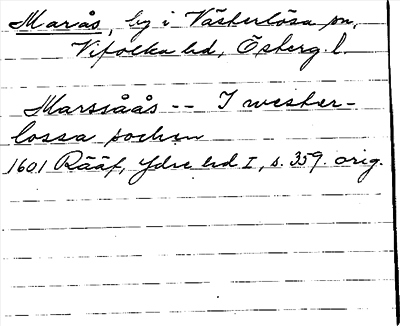 Marås, by i Västerlösa sn,
Vifolka hd, Östergl.
Marssåås -- I wester-
lossa sochen
1601 Rääf, Ydre hd I, s. 359. orig.